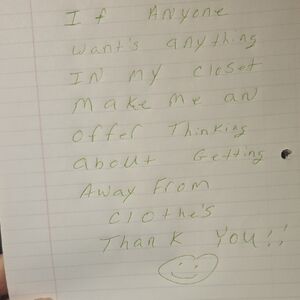 If Anyone
want's anything
In my closet
make me an
offer Thinking
about Getting
Away From
clothe's
Thank You!!